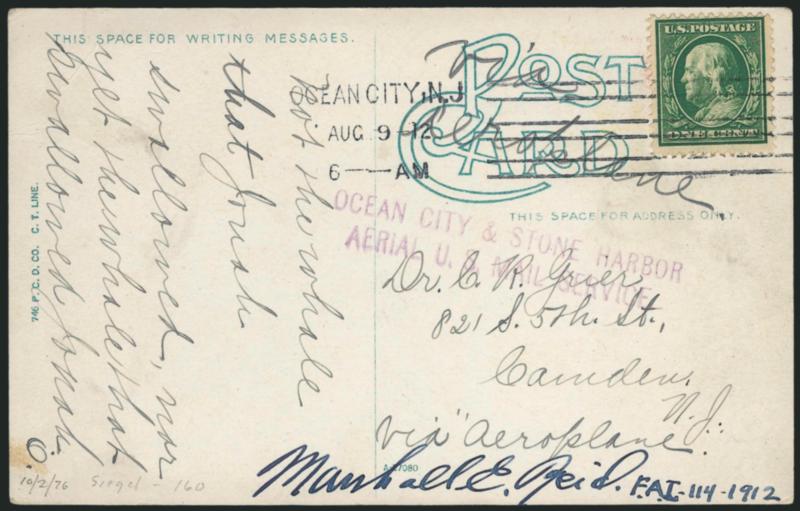 THIS SPACE FOR WRITING MESSAGES.
Not the whale
that Jonah
swallowed, nor
yet the whale that
swallowed Jonah
O.
746 P. C. D. CO. C. T. LINE.
10/2/76 Siegel - 160
POST CARD
U.S. POSTAGE
ONE CENT
OCEAN CITY, N.J.
AUG 9 - 12
6 — AM
Via
aeroplane
THIS SPACE FOR ADDRESS ONLY.
OCEAN CITY & STONE HARBOR
AERIAL U. S. MAIL SERVICE
Dr. C. R. Grier,
821 S. 5th. St.,
Camden,
N. J.
via "Aeroplane".
A-27080
Marshall E. Reid. F.A.I-114-1912